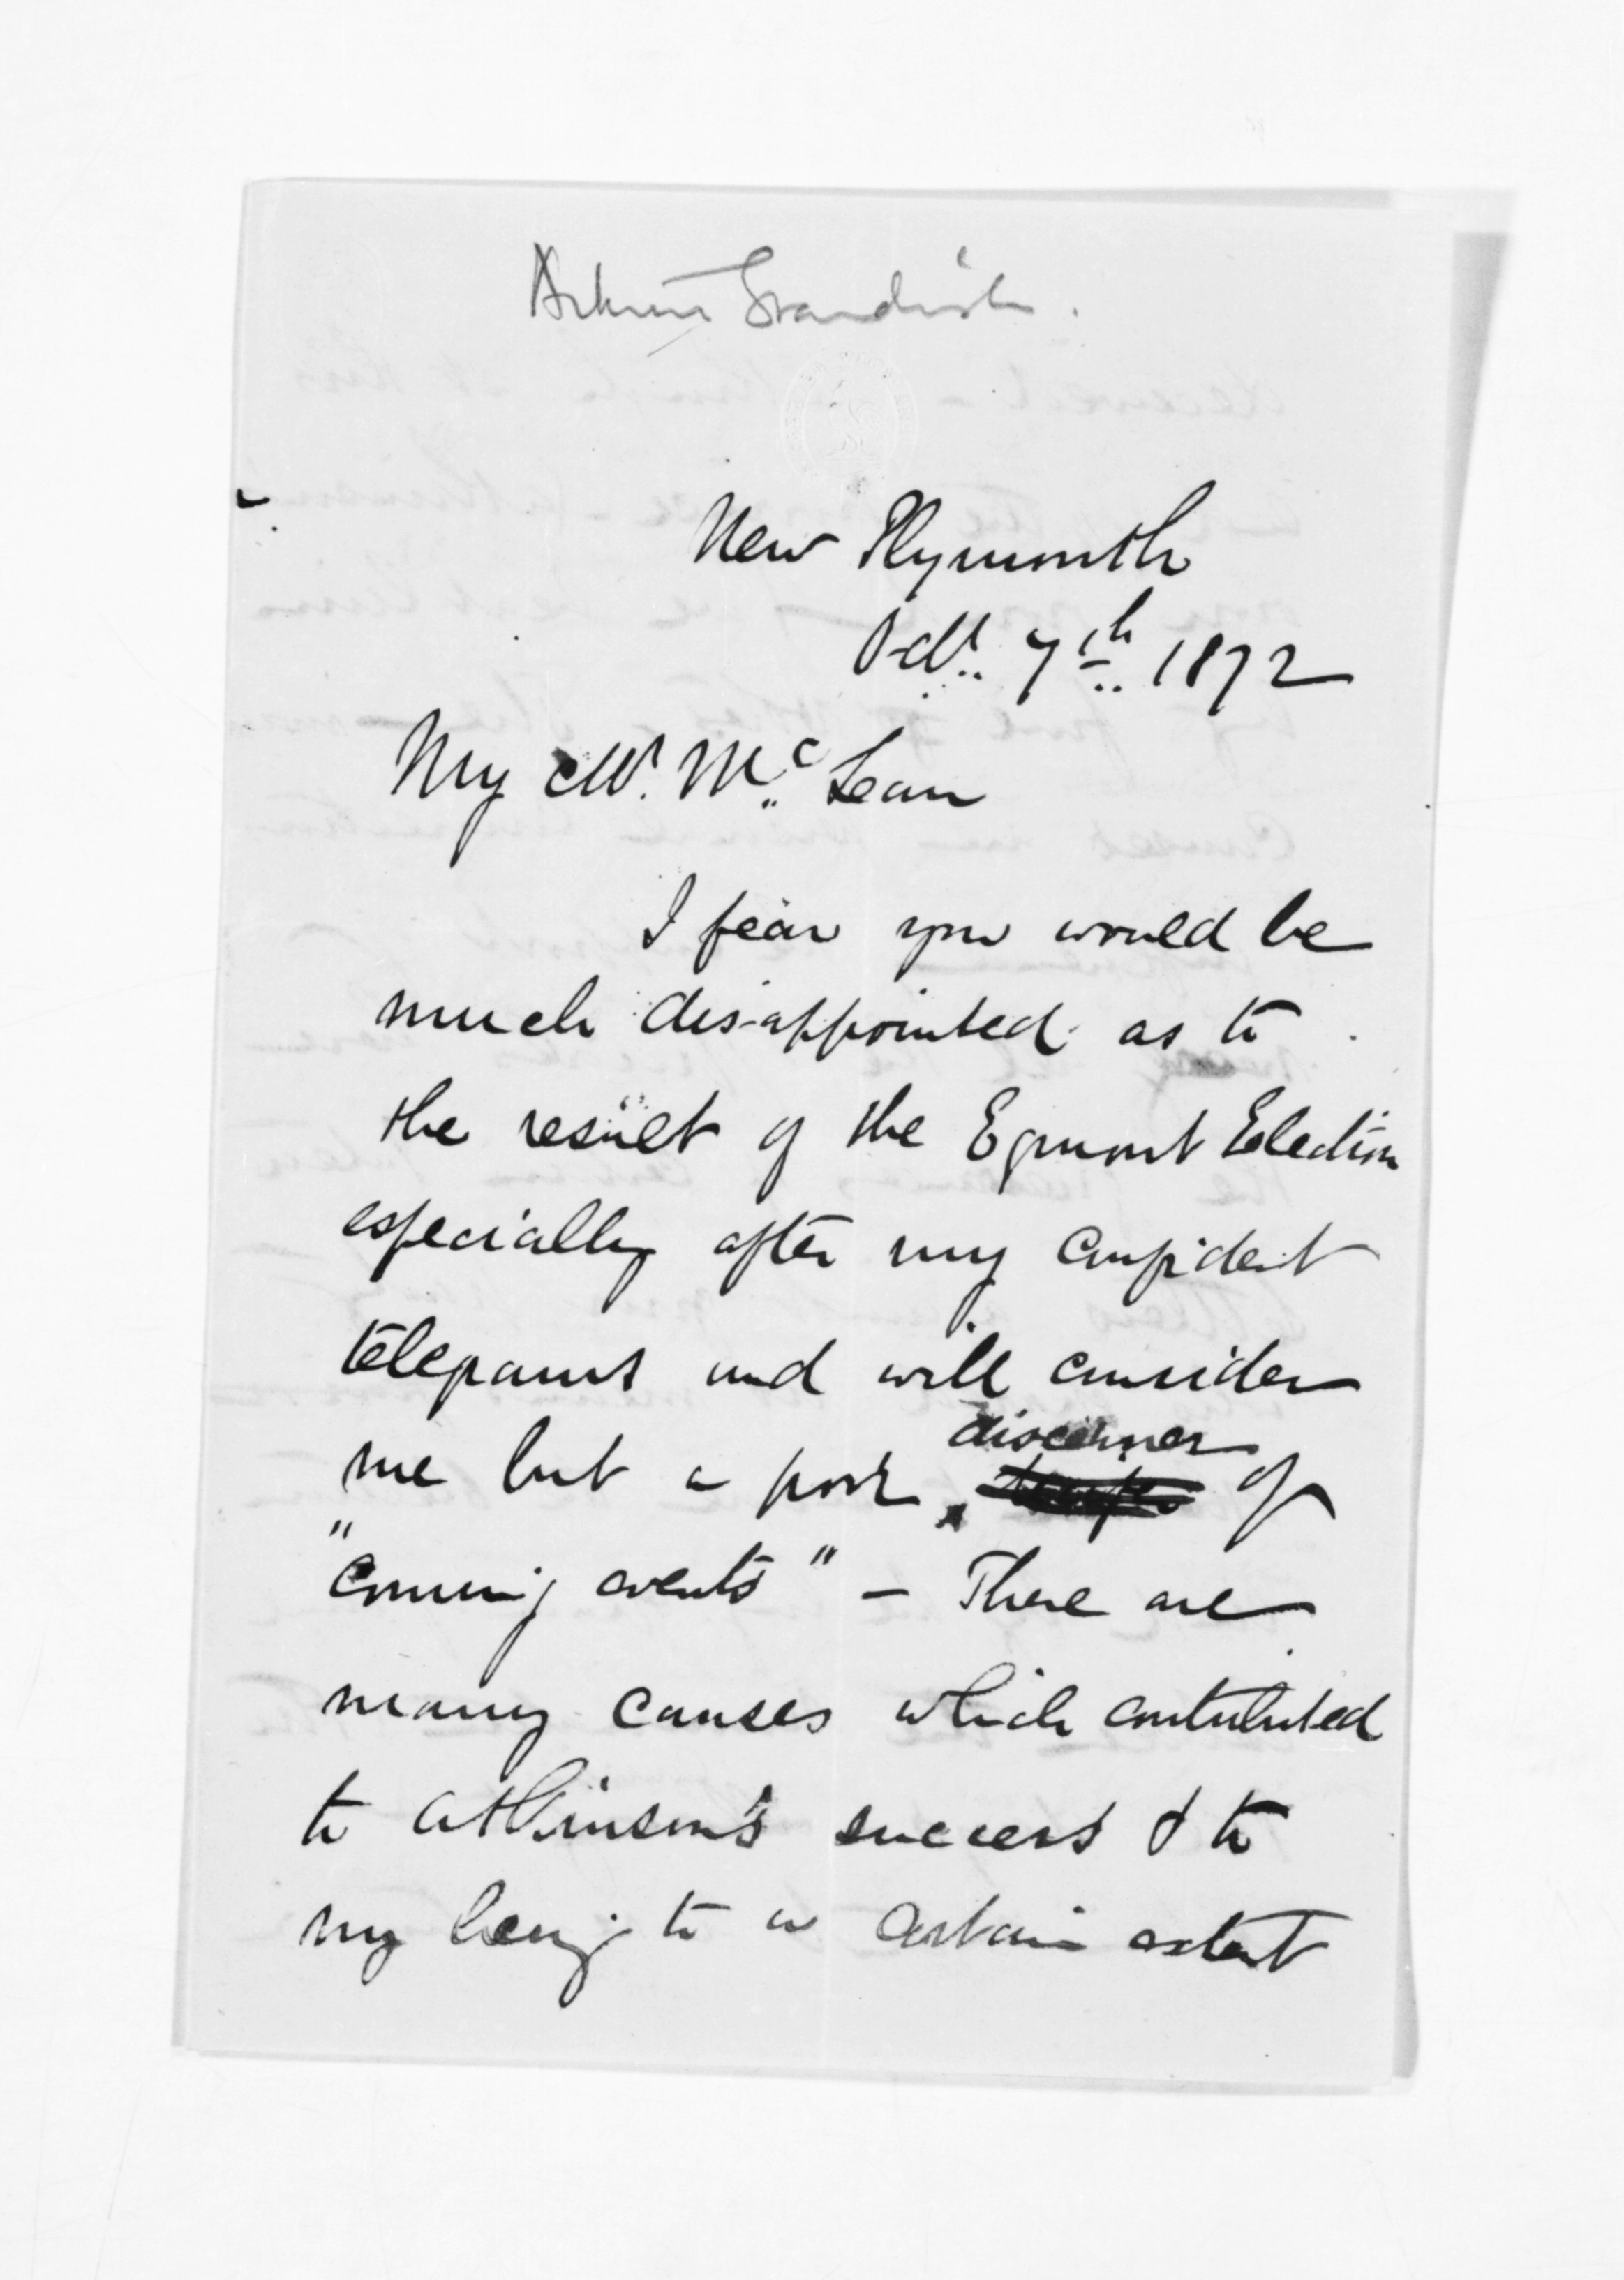 Arthur Standish.
New Plymouth
Octr. 7th. 1872
My Mr. McLean
I fear you would be
much dis-appointed as to
the result of the Egmont Election
especially after my confident
telegrams and will consider
me but a poor discerner of
"coming events" - There are
many causes which contributed
to Atkinson's success & to
my being to a certain extent